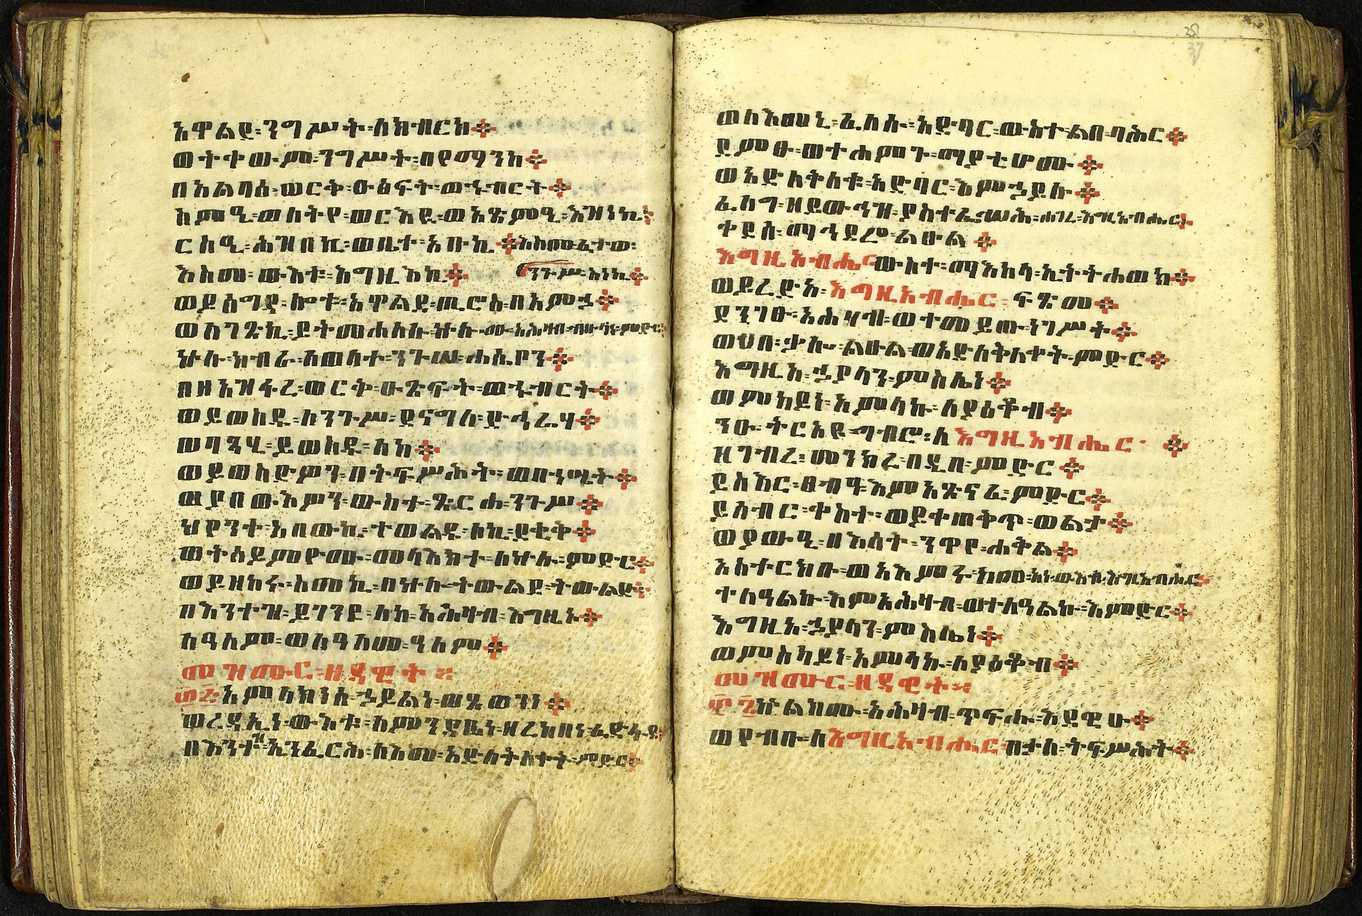 አዋልደ፡ንግሥት፡ለክብርከ።
ወትቀውም፡ንግሥት፡በየማንከ።
በአልባሰ፡ወርቅ፡ዑፅፍት፡ወኁብርት።
ስምዒ፡ወለትየ፡ወርእዪ፡ወአጽምዒ፡እዝነኪ።
ርስዒ፡ሕዝበኪ፡ወቤተ፡አቡኪ።እስመ፡ፈተወ፡
እስመ፡ውእቱ፡እግዚእኪ። ንጉሥ፡ስነኪ።
ወይሰግዳ፡ሎቱ፡አዋልደ፡ጢሮስ፡በአምኃ።
ወለገጽኪ፡ይትመሐለሉ፡ኵሉ፡ሙ፡አሕዛብ፡ብዑላነ፡ምድር።
ኵሉ፡ክብራ፡ለወለተ፡ንጉሠ፡ሐሴቦን።
በዘአዝፋረ፡ወርቅ፡ዑጽፍት፡ወኁብርት።
ወይወስዱ፡ለንጉሥ፡ደናግለ፡ድኅሬሃ።
ወባጺሃ፡ይወስዱ፡ለከ።
ወይወስድዎን፡በትፍሥሕት፡ወበኀሤት።
ወያበውእዎን፡ውስተ፡ጽርሐ፡ንጉሥ።
ህየንተ፡አበውኪ፡ተወልዱ፡ለኪ፡ደቂቅ።
ወትሰይምዮሙ፡መላእክተ፡ለኵሉ፡ምድር።
ወይዘከሩ፡ስመኪ፡በኵሉ፡ትውልደ፡ትውልድ።
በእንተዝ፡ይገንዩ፡ለከ፡አሕዛብ፡እግዚኦ።
ለዓለም፡ወለዓለመ፡ዓለም።
መዝሙር፡ዘዳዊት።
፵፭አምላክነሰ፡ኃይልነ፡ወጸወንነ።
ወረዳኢነ፡ውእቱ፡በምንዳቤነ፡ዘረከበነ፡ፈድፋደ።
በእንተዝ፡ኢንፈርህ፡ለእመ፡አድለቅለቀት፡ምድር።
ወለእመኒ፡ፈለሱ፡አድባር፡ውስተ፡ልበ፡ባሕር።
ደምፁ፡ወተሐምጉ፡ማያቲሆሙ።
ወአድለቅለቁ፡አድባር፡እምኃይሉ።
ፈለግ፡ዘይውኅዝ፡ያስተፌሥሕ፡ሀገረ፡እግዚአብሔር።
ቀደሰ፡ማኅደሮ፡ልዑል።
እግዚአብሔር፡ውስተ፡ማእከላ፡ኢትትሐወክ።
ወይረድኣ፡እግዚአብሔር፡ፍጹመ።
ደንገፁ፡አሕዛብ፡ወተመይጡ፡ነገሥት።
ወሀበ፡ቃሎ፡ልዑል፡ወአድለቅለቀት፡ምድር።
እግዚአ፡ኃያላን፡ምስሌነ።
ወምስካይነ፡አምላኩ፡ለያዕቆብ።
ንዑ፡ትርአዩ፡ግብሮ፡ለእግዚአብሔር።
ዘገብረ፡መንክረ፡በዲበ፡ምድር።
ይስእር፡ፀብዓ፡እምአጽናፈ፡ምድር።
ይሰብር፡ቀስተ፡ወይቀጠቅጥ፡ወልታ።
ወያውዒ፡በእሳት፡ንዋየ፡ሐቅል።
አስተርክቡ፡ወአእምሩ፡ከመ፡አነ፡ውእቱ፡እግዚአብሔር።
ተለዓልኩ፡እምአሕዛብ፡ወተለዓልኩ፡እምድር።
እግዚአ፡ኃያላን፡ምስሌነ።
ወምስካይነ፡አምላኩ፡ለያዕቆብ።
መዝሙር፡ዘዳዊት።
፵፮ኵልክሙ፡አሕዛብ፡ጥፍሑ፡እደዊሁ።
ወየብቡ፡ለእግዚአብሔር፡በቃለ፡ትፍሥሕት።